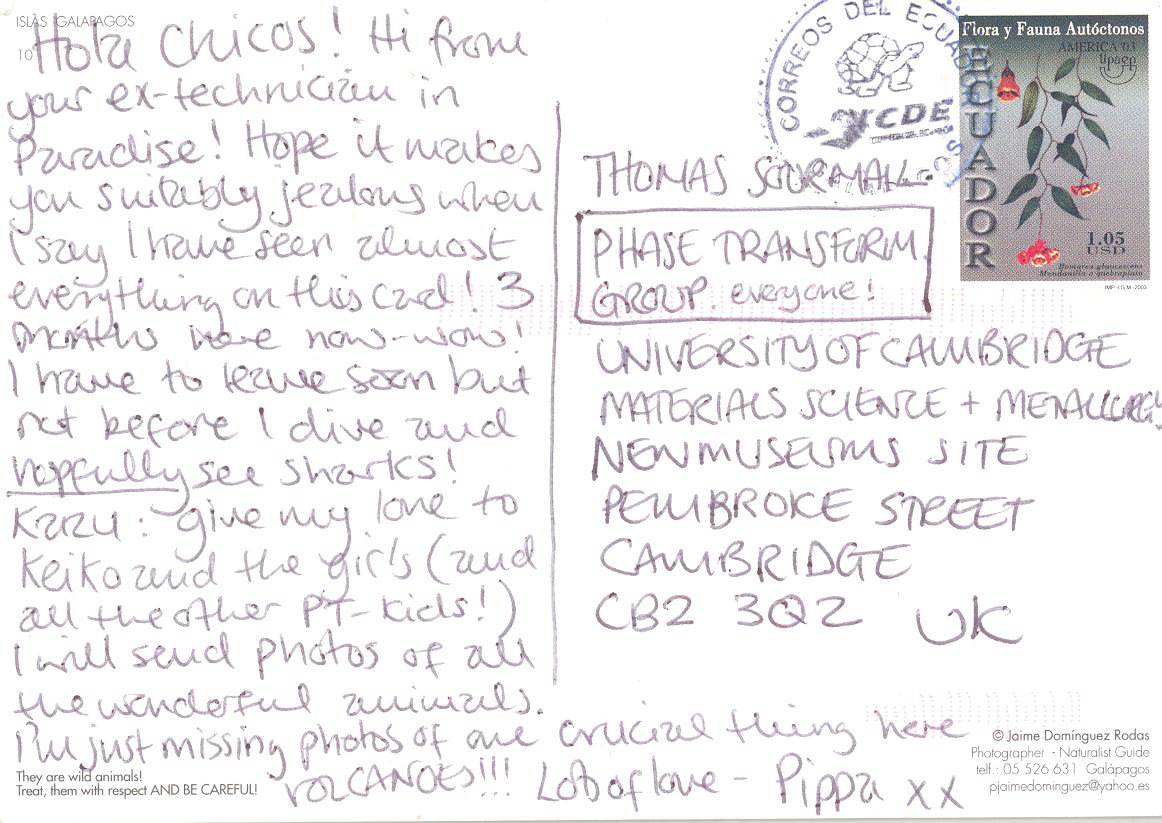 ISLAS GALAPAGOS
10
Hola Chicos! Hi from
your ex-technician in
Paradise! Hope it makes
you suitably jealous when
I say I have seen almost
everything on this card! 3
months here now-wow!
I have to leave soon but
not before I dive and
hopfully see sharks!
Kazu: give my love to
Keiko and the girls (and
all the other PT-kids!)
I will send photos of all
the wonderful animals.
I'm just missing photos of one crucial thing here
VOLCANOES!!! Lots of love - Pippa xx
They are wild animals!
Treat, them with respect AND BE CAREFUL!
CORREOS DEL ECUADOR
Flora y Fauna Autóctonos
AMERICA '03
upaep
ECUADOR
1.05
USD
Bomarea glaucescens
Mundanillo o quebraplato
IMP-I.G.M-2003
THOMAS SOURMAIL
PHASE TRANSFORM.
GROUP. everyone!
UNIVERSITY OF CAMBRIDGE
MATERIALS SCIENCE + METALLURGY
NEW MUSEUMS SITE
PEMBROKE STREET
CAMBRIDGE
CB2 3QZ UK
© Jaime Domínguez Rodas
Photographer - Naturalist Guide
telf.: 05 526 631 Galápagos
pjaimedominguez@yahoo.es